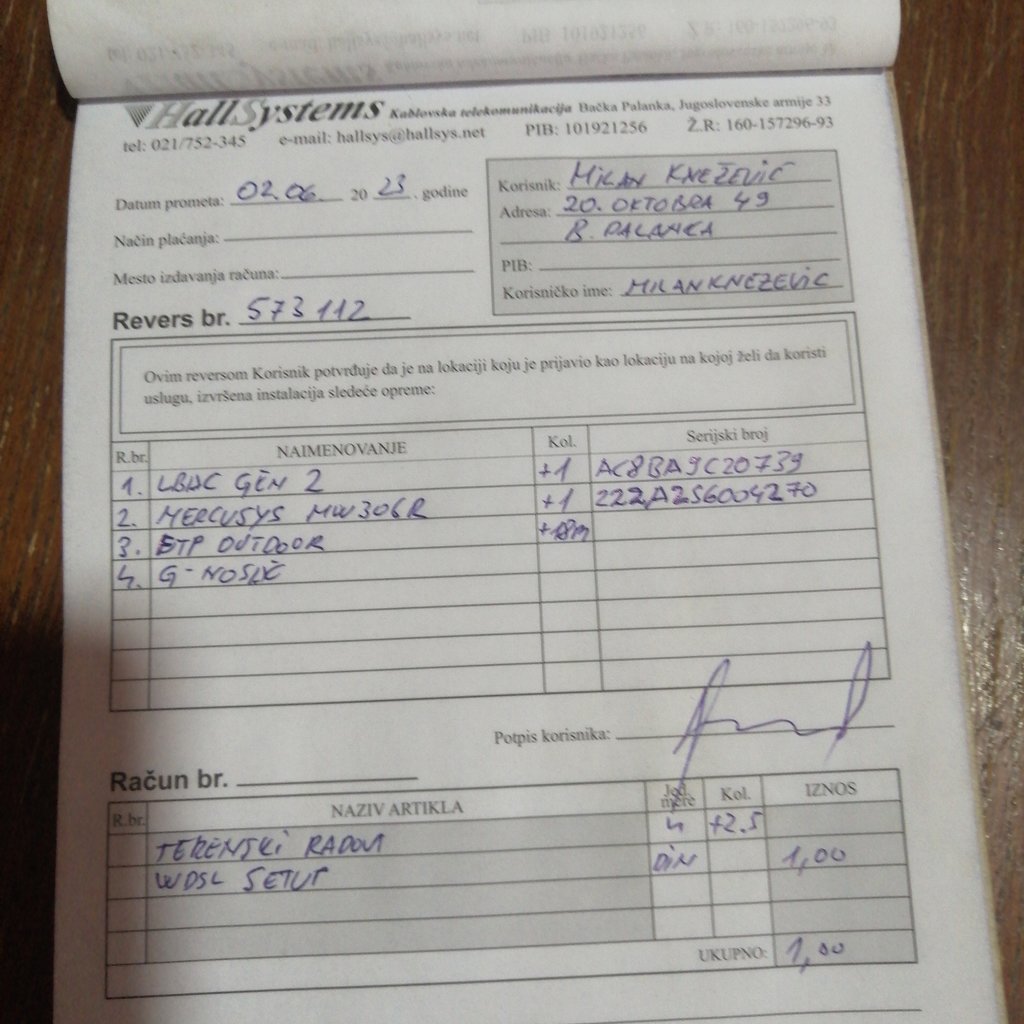 HallSystems Kablovska telekomunikacija Bačka Palanka, Jugoslovenske armije 33
tel: 021/752-345 e-mail: hallsys@hallsys.net PIB: 101921256 Ž.R: 160-157296-93
Datum prometa: 02.06. 2023. godine
Način plaćanja:
Mesto izdavanja računa:
Korisnik: MILAN KNEŽEVIĆ
Adresa: 20. OKTOBRA 49
B. PALANKA
PIB:
Korisničko ime: MILANKNEZEVIC
Revers br. 573112
Ovim reversom Korisnik potvrđuje da je na lokaciji koju je prijavio kao lokaciju na kojoj želi da koristi
uslugu, izvršena instalacija sledeće opreme:
R.br. NAIMENOVANJE Kol. Serijski broj
1. LBAC GEN 2 +1 AC8BA9C20739
2. MERCUSYS MW306R +1 222A2S6004270
3. STP OUTDOOR +18m
4. G-NOSAČ
Potpis korisnika:
Račun br.
R.br. NAZIV ARTIKLA Jed. mere Kol. IZNOS
TERENSKI RADOVI h +2.5
WDSL SETUP DIN 1,00
UKUPNO: 1,00